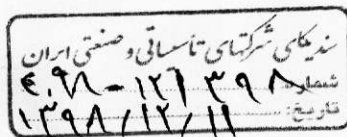 سندیکای شرکتهای تاسیساتی و صنعتی ایران
شماره: ۴۰۹۸-۱۲۱۳۹۸
تاریخ: ۱۳۹۸/۱۲/۱۱